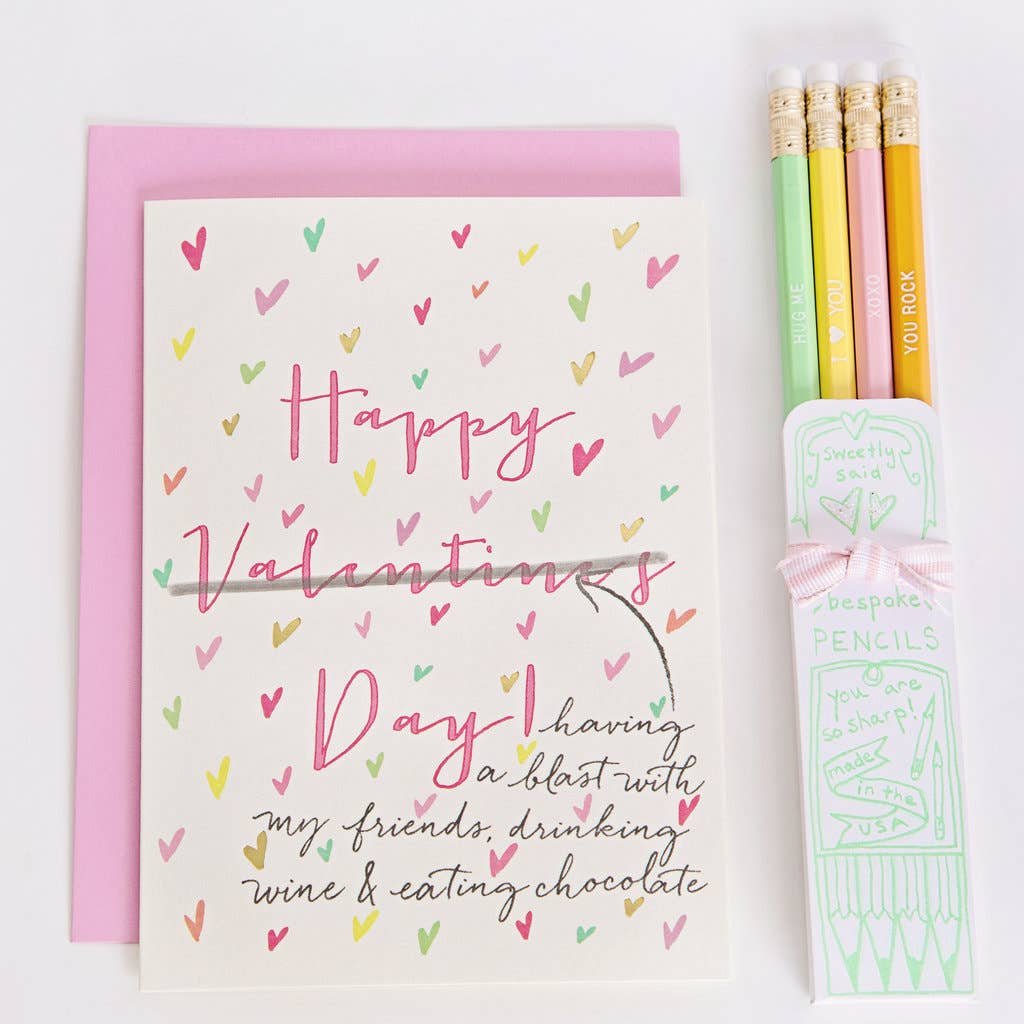 Happy
Valentines
Day!
having
a blast with
my friends, drinking
wine & eating chocolate
HUG ME
I ♥ YOU
XOXO
YOU ROCK
sweetly
said
bespoke
PENCILS
you are
so sharp!
made
in the
USA